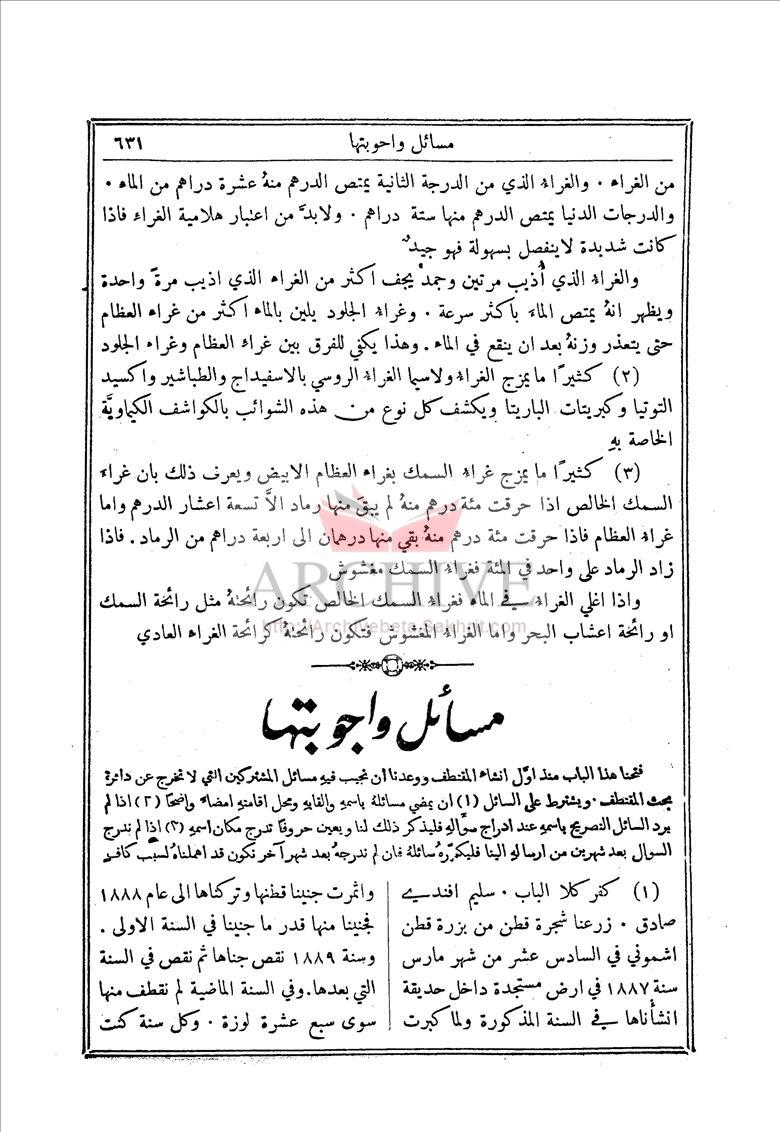 مسائل واجوبتها ٦٣١
من الغراء ٠ والغراء الذي من الدرجة الثانية يمتص الدرهم منهُ عشرة دراهم من الماء ٠
والدرجات الدنيا يمتص الدرهم منها ستة دراهم ٠ ولابدَّ من اعتبار هلامية الغراء فاذا
كانت شديدة لاينفصل بسهولة فهو جيد
والغراء الذي أُذيب مرتين وجمد يجف اكثر من الغراء الذي اذيب مرةً واحدة
ويظهر انهُ يمتص الماء باكثر سرعة ٠ وغراء الجلود يلين بالماء اكثر من غراء العظام
حتى يتعذر وزنهُ بعد ان ينقع في الماء . وهذا يكفي للفرق بين غراء العظام وغراء الجلود
(٢) كثيرًا ما يمزج الغراء ولاسيما الغراء الروسي بالاسفيداج والطباشير واكسيد
التوتيا وكبريتات الباريتا ويكشف كل نوع من هذه الشوائب بالكواشف الكيماويَّة
الخاصة بهِ
(٣) كثيرًا ما يمزج غراء السمك بغراء العظام الابيض ويعرف ذلك بان غراء
السمك الخالص اذا حرقت مئة درهم منهُ لم يبقَ منها رماد الاَّ تسعة اعشار الدرهم واما
غراء العظام فاذا حرقت مئة درهم منهُ بقي منها درهمان الى اربعة دراهم من الرماد . فاذا
زاد الرماد على واحد في المئة فغراء السمك مغشوش
ARCHIVE
واذا اغلي الغراء في الماء فغراء السمك الخالص تكون رائحتهُ مثل رائحة السمك
او رائحة اعشاب البحر واما الغراء المغشوش فتكون رائحتهُ كرائحة الغراء العادي
http://Archivebeta.Sakhrit.com
مسائل واجوبتها
فتحنا هذا الباب منذ اوَّل انشاء المقتطف ووعدنا ان نجيب فيهِ مسائل المشتركين التي لا تخرج عن دائرة
بحث المقتطف ٠ ويشترط على السائل (١) ان يمضي مسائلهُ باسمهِ والقابهِ ومحل اقامتهِ امضاءً واضحًا (٢) اذا لم
يرد السائل التصريح باسمهِ عند ادراج سؤالهِ فليذكر ذلك لنا ويعين حروفًا تدرج مكان اسمهِ (٣) اذا لم ندرج
السؤال بعد شهرين من ارسالهِ الينا فليكرّرهُ سائلهُ فان لم ندرجهُ بعد شهر آخر نكون قد اهملناهُ لسبب كافٍ
(١) كفر كلا الباب ٠ سليم افندي
صادق ٠ زرعنا شجرة قطن من بزرة قطن
اشموني في السادس عشر من شهر مارس
سنة ١٨٨٧ في ارض مستجدة داخل حديقة
انشأناها في السنة المذكورة ولما كبرت
واثمرت جنينا قطنها وتركناها الى عام ١٨٨٨
فجنينا منها قدر ما جنينا في السنة الاولى .
وسنة ١٨٨٩ نقص جناها ثم نقص في السنة
التي بعدها . وفي السنة الماضية لم نقطف منها
سوى سبع عشرة لوزة ٠ وكل سنة كنت